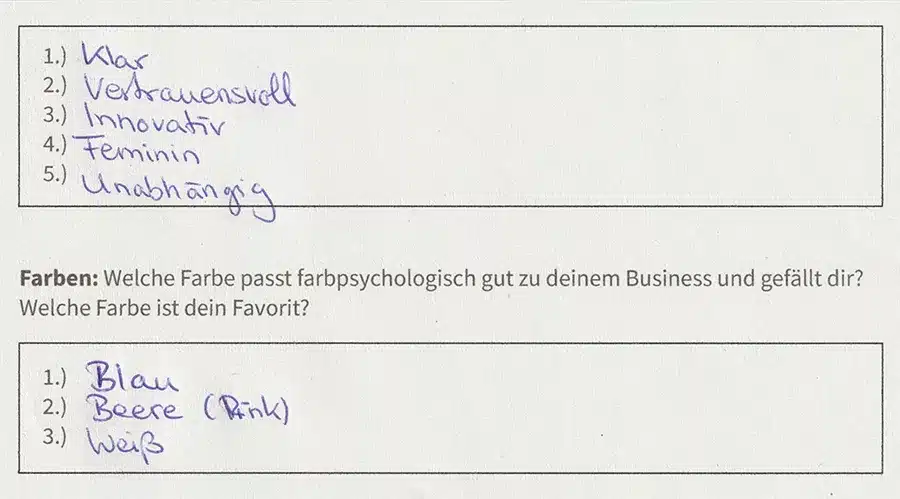 1.) Klar
2.) Vertrauensvoll
3.) Innovativ
4.) Feminin
5.) Unabhängig
Farben: Welche Farbe passt farbpsychologisch gut zu deinem Business und gefällt dir?
Welche Farbe ist dein Favorit?
1.) Blau
2.) Beere (Pink)
3.) Weiß